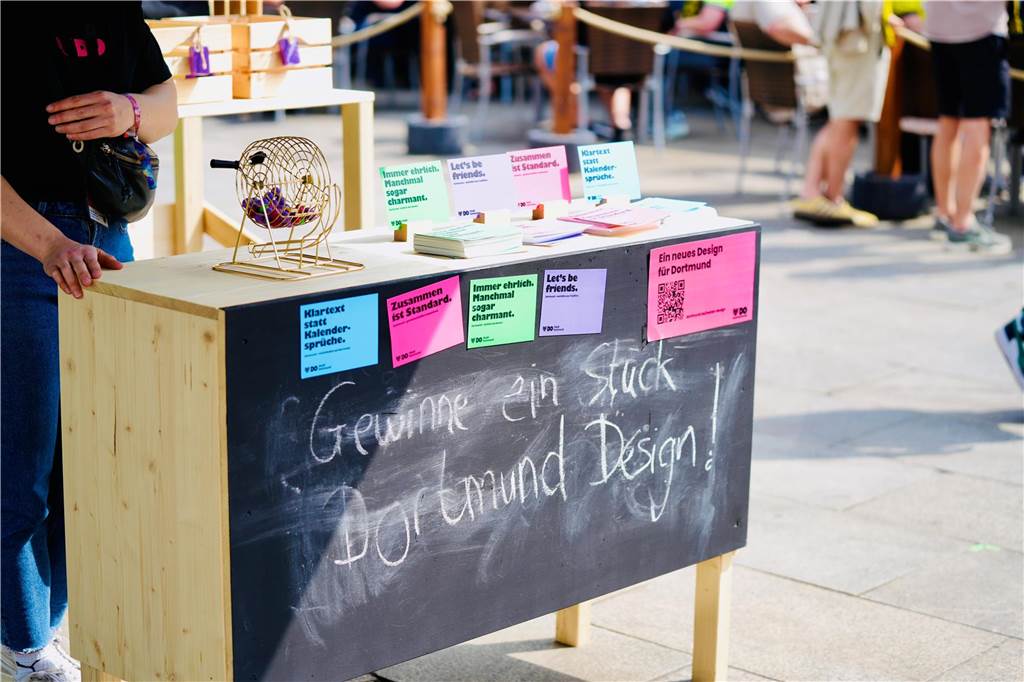 Immer ehrlich.
Manchmal
sogar
charmant.
Let's be
friends.
Zusammen
ist Standard.
Klartext
statt
Kalender-
sprüche.
Klartext
statt
Kalender-
sprüche.
DO
Zusammen
ist Standard.
DO
Immer ehrlich.
Manchmal
sogar
charmant.
DO
Let's be
friends.
DO
Ein neues Design
für Dortmund
DO
Gewinne ein Stück
Dortmund Design!